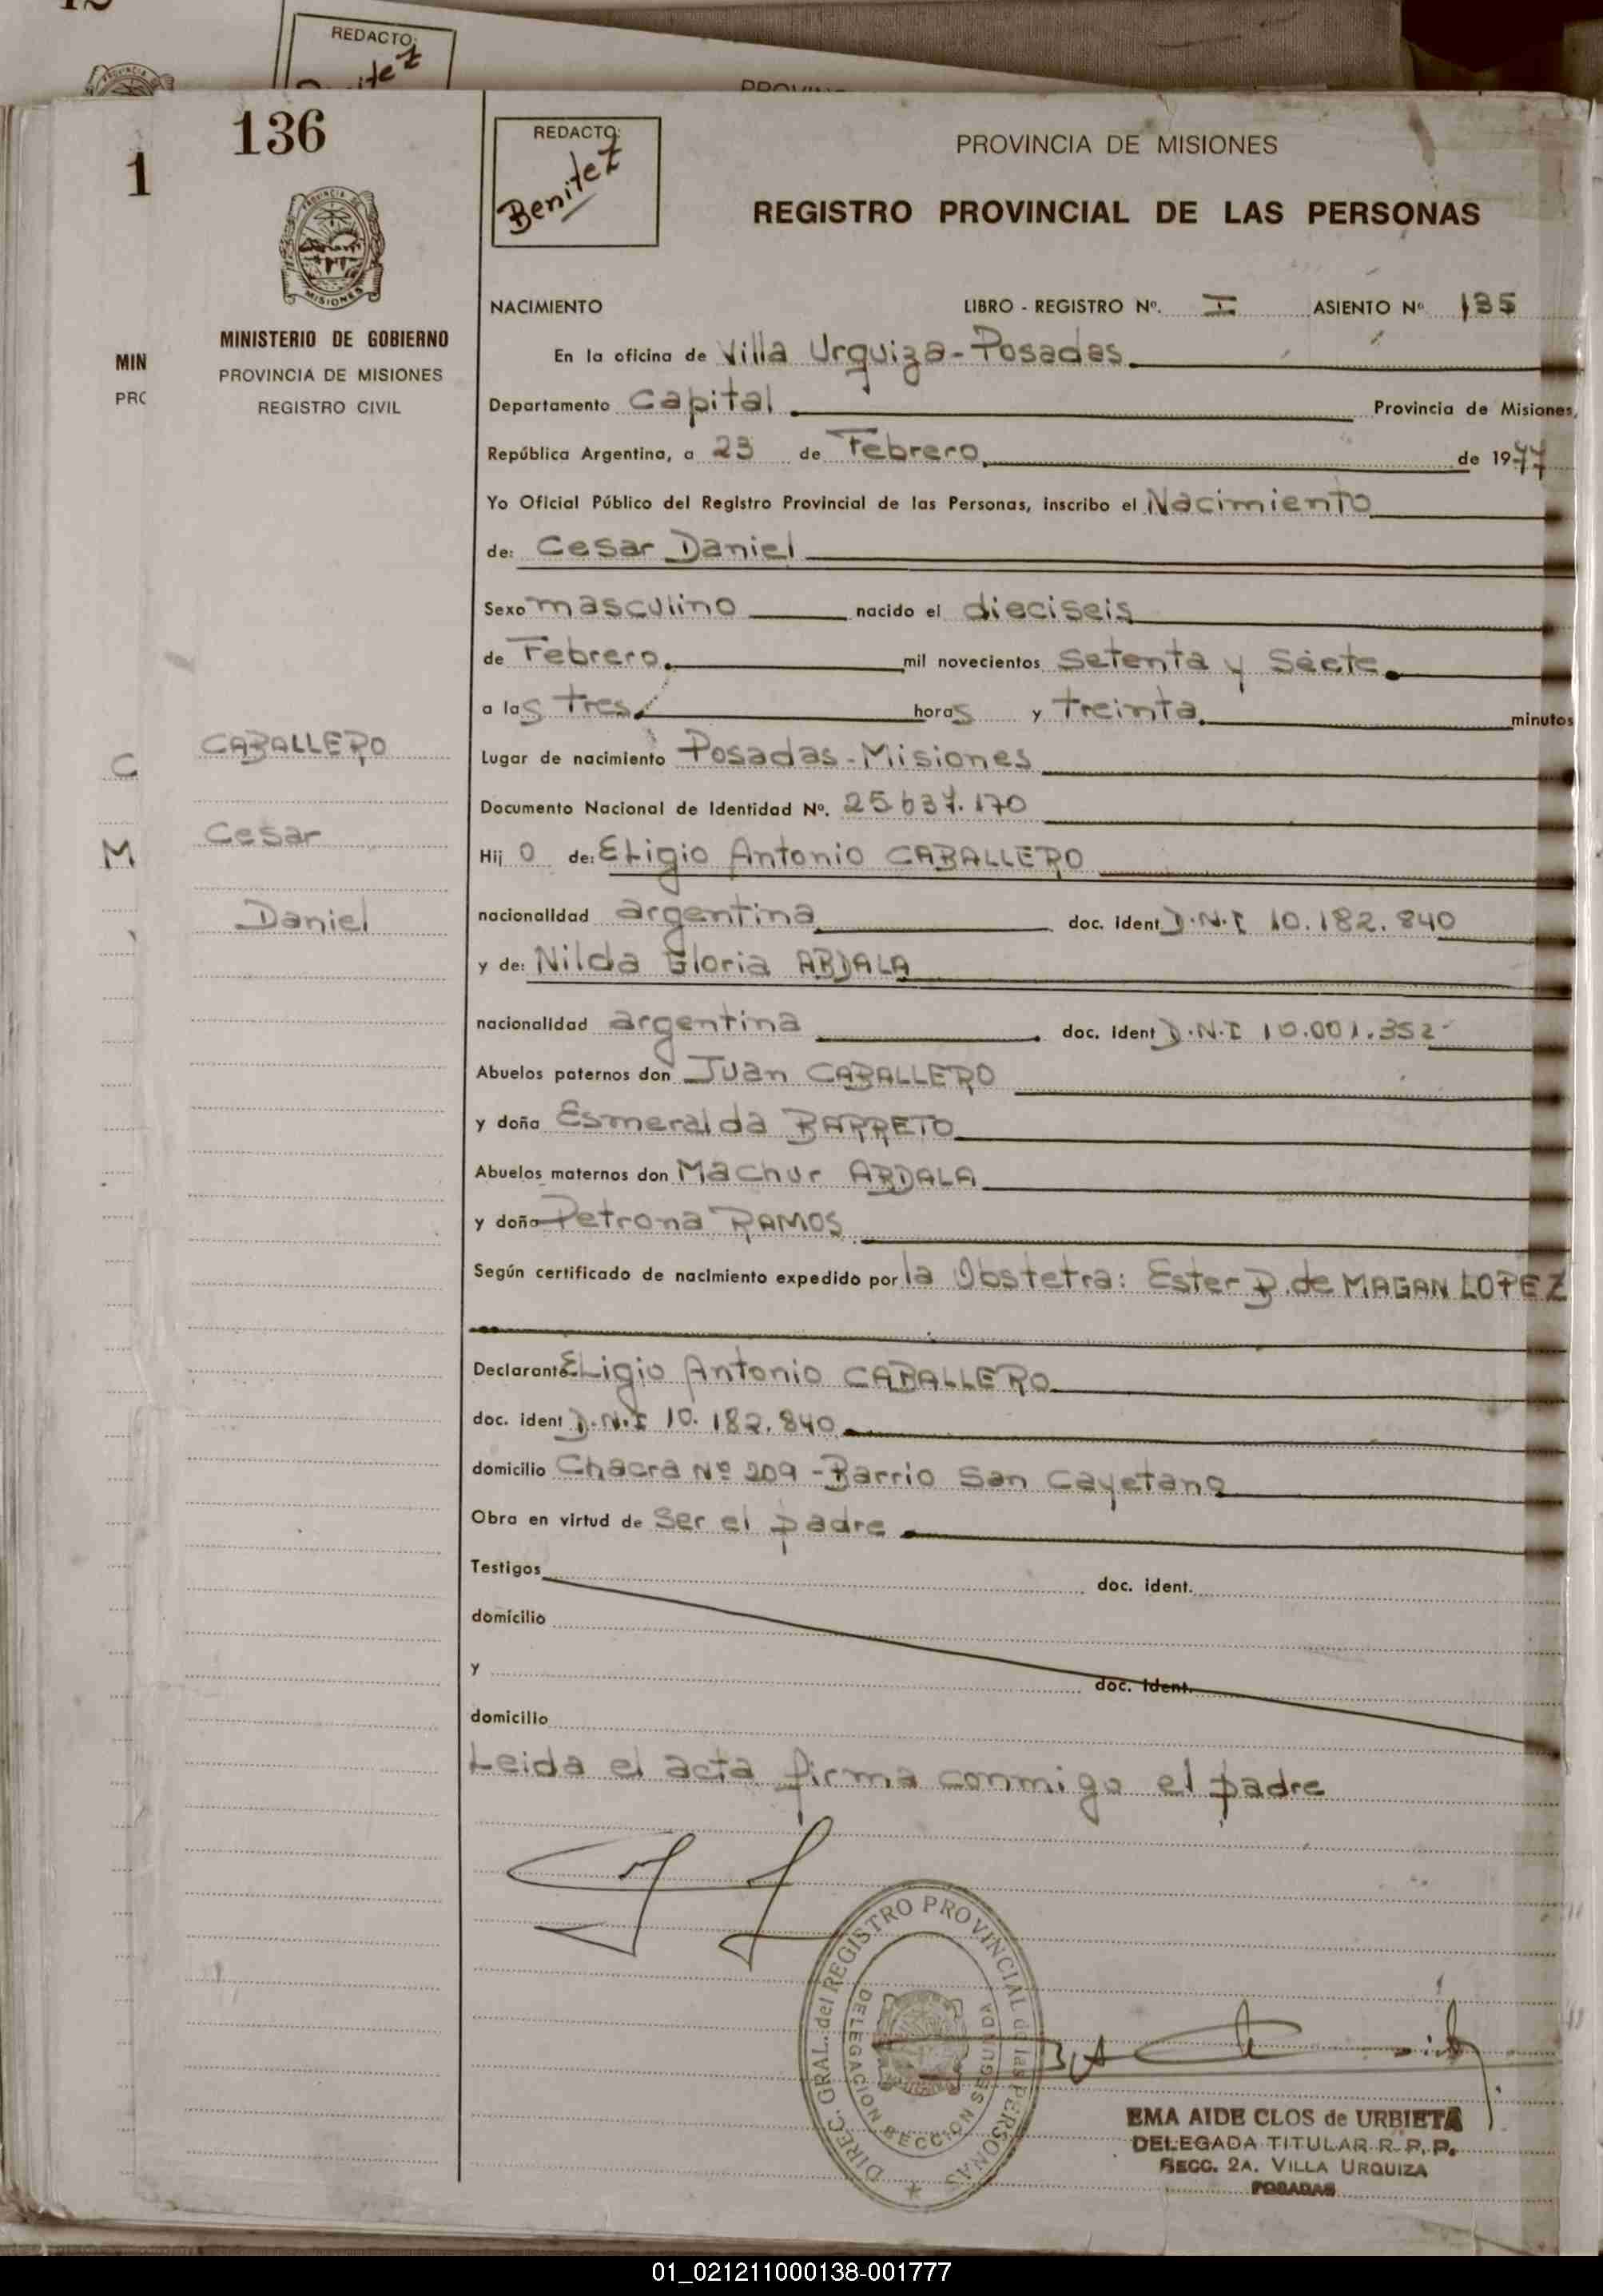 REDACTO:
136
1
REDACTO:
Benitez
PROVINCIA DE MISIONES
REGISTRO PROVINCIAL DE LAS PERSONAS
MISIONES
MINISTERIO DE GOBIERNO
PROVINCIA DE MISIONES
REGISTRO CIVIL
MIN
PRC
NACIMIENTO LIBRO - REGISTRO Nº. I ASIENTO Nº 135
En la oficina de Villa Urquiza - Posadas
Departamento Capital Provincia de Misiones,
República Argentina, a 23 de Febrero de 1977
Yo Oficial Público del Registro Provincial de las Personas, inscribo el Nacimiento
de: Cesar Daniel
Sexo masculino nacido el dieciseis
de Febrero. mil novecientos setenta y siete.
a las tres. horas y treinta. minutos
CABALLERO
C
Cesar
M
Daniel
Lugar de nacimiento Posadas - Misiones
Documento Nacional de Identidad Nº. 25.637.170
Hij o de: Eligio Antonio CABALLERO
nacionalidad argentina doc. ident D.N.I 10.182.840
y de: Nilda Gloria ABDALA
nacionalidad argentina doc. ident D.N.I 10.001.352
Abuelos paternos don Juan CABALLERO
y doña Esmeralda BARRETO
Abuelos maternos don Machur ABDALA
y doña Petrona RAMOS
Según certificado de nacimiento expedido por la Obstetra: Ester B. de MAGAN LOPEZ
Declarante ELigio Antonio CABALLERO
doc. ident D.N.I 10.182.840
domicilio Chacra Nº 209 - Barrio San Cayetano
Obra en virtud de ser el padre
Testigos doc. ident.
domicilio
y doc. ident.
domicilio
Leida el acta firma conmigo el padre
DIREC. GRAL. del REGISTRO PROVINCIAL de las PERSONAS
DELEGACION SECCION SEGUNDA
EMA AIDE CLOS de URBIETA
DELEGADA TITULAR R. P. P.
SECC. 2A. VILLA URQUIZA
POSADAS
01_021211000138-001777